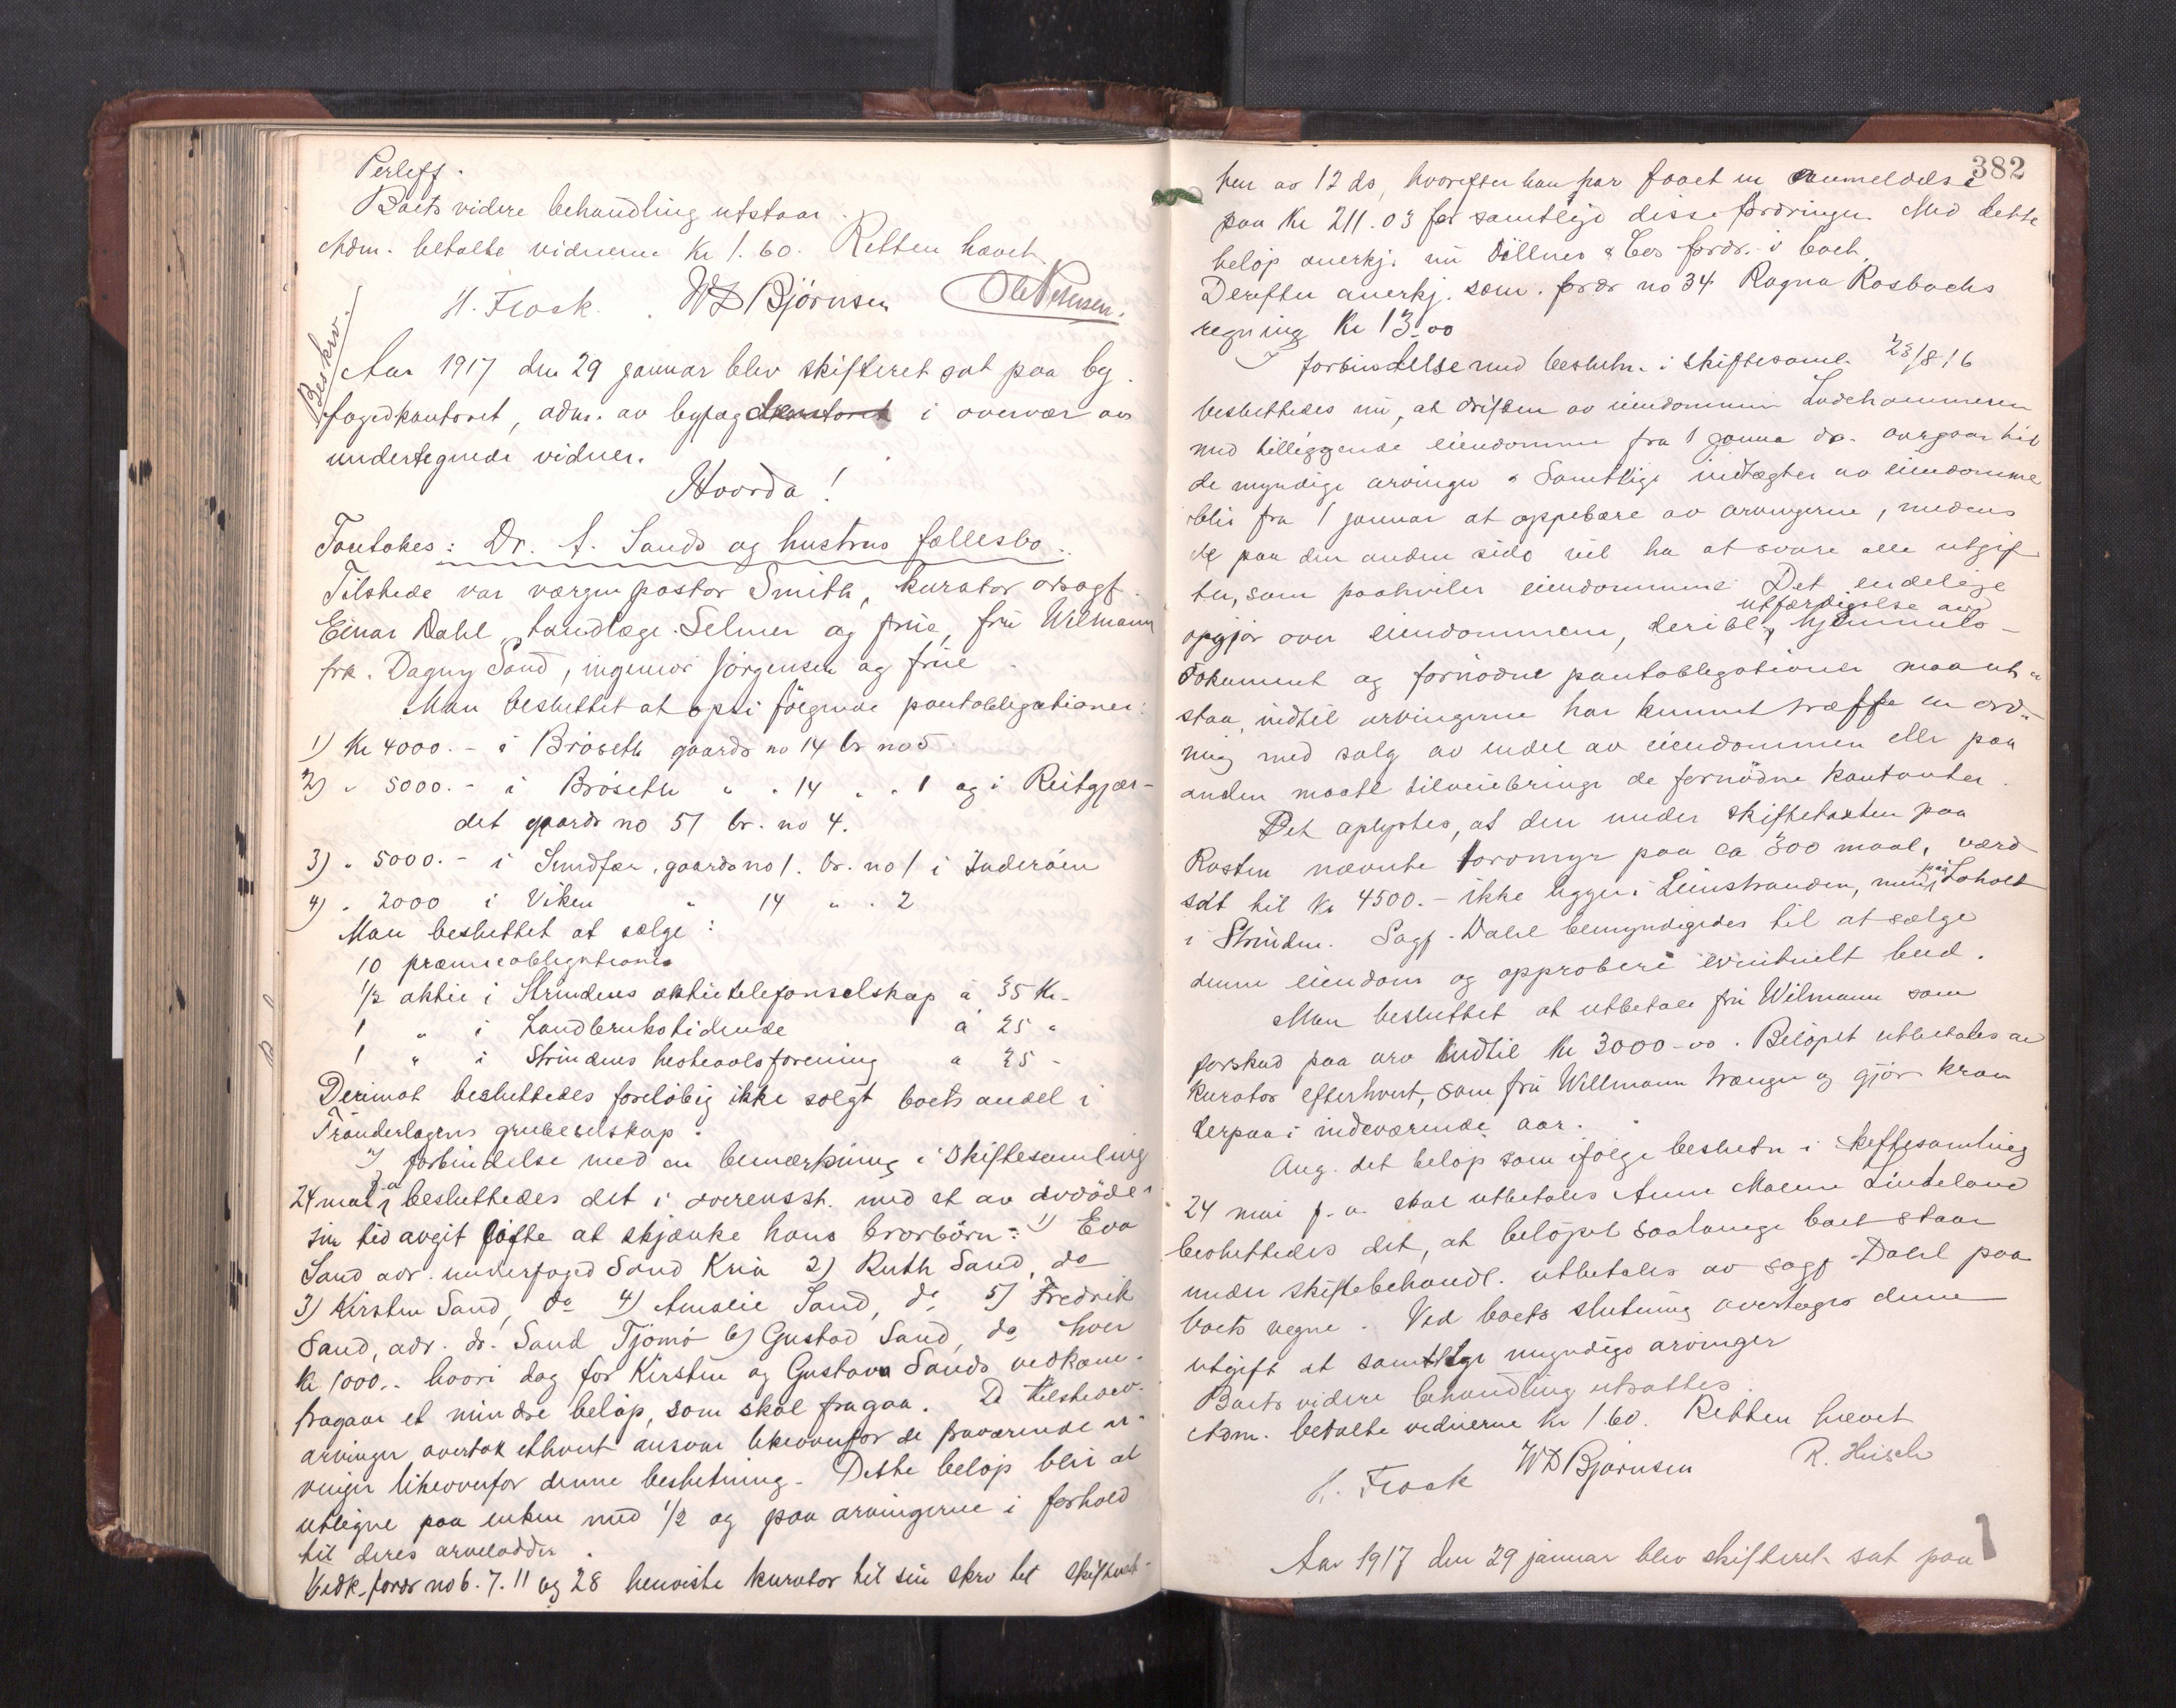 Perleff.
Boets videre behandling utstaar.
Adm. betalte vidnerne Kr 1.60. Retten hævet
H. Frook. WD Bjørnsen Ole Petersen.
Beskrv.
Aar 1917 den 29 januar blev skifteret sat paa by-
fogedkontoret, adm. av byfogdkontoret i overvær av
undertegnede vidner.
Hvorda!
Foretokes: Dr. A. Sands og hustrus fællesbo.
Tilstede var værgen pastor Smith, kurator o.r.sagf.
Einar Dahl, tandlæge Selmer og frue, fru Wilmann
frk. Dagny Sand, ingeniør Jörgensen og frue
Man besluttet at opsi følgende pantobligationer:
1) Kr 4000.- i Bröseth gaards no 14 br no 5.
2) " 5000.- i Bröseth " " 14 " " 1 og i Reitgjær-
det gaards no 51 br. no 4.
3) " 5000.- i Sundfær, gaards no 1. br. no 1 i Inderöen
4) " 2000 i Viken " 14 " " 2
Man besluttet at sælge:
10 præmieobligationer
1/2 aktie i Strindens aktietelefonselskap à 35 Kr-
1 " i Landbrukstidende à 25 "
1 " i Strindens hesteavlsforening a 25 -
Derimot besluttedes foreløbig ikke solgt boets andel i
Trönderlagens grubeselskap.
I forbindelse med en bemærkning i skiftesamling
24 mai f.a. besluttedes det i overensst. med et av avdöde i
sin tid avgit löfte at skjænke hans brorbörn: 1) Eva
Sand adr. underfoged Sand Kria 2) Ruth Sand, do
3) Kirsten Sand, do 4) Amalie Sand, do 5) Fredrik
Sand, adr. dr. Sand Tjömö 6) Gustav Sand, do hver
Kr 1000.- hvori dog for Kirsten og Gustav Sands vedkom-
fragaar et mindre beløp, som skal fragaa. De tilstedev.
arvinger overtok ethvert ansvar likeoverfor de fraværende ar-
vinger likeoverfor denne beslutning. Dette beløp blir at
utligne paa enken med 1/2 og paa arvingerne i forhold
til deres arvelodder.
Vedk. fordr no 6. 7. 11 og 28 henviste kurator til sin skrv til skifteret-
382
ten av 12 ds, hvorefter han har faaet en anmeldelse
paa Kr 211.03 for samtlige disse fordringer. Med dette
beløp anerkj. nu Dillner & Cos fordr. i boet.
Derefter anerkj. som fordr no 34 Ragna Rosbachs
regning Kr 13.00
I forbindelse med beslutn. i skiftesaml. 23/8 16
besluttedes nu, at driften av eiendommen Ladehammeren
med tilliggende eiendomme fra 1 janua ds. overgaar til
de myndige arvinger. Samtlige indtægter av eiendomme
blir fra 1 januar at oppebære av arvingerne, medens
de paa den anden side vil ha at svare alle utgif
ter, som paahviler eiendommene. Det endelige
opgjør over eiendommene, deribl. utfærdigelse av hjemmels-
dokument og fornødne pantobligationer maa ut-
staa, indtil arvingerne har kunnet træffe en ord-
ning med salg av endel av eiendommen eller paa
anden maate tilveiebringe de fornødne kontanter.
Det oplystes, at den under skiftetaxten paa
Rosten nævnte torvmyr paa ca 300 maal, værd
sat til Kr 4500.- ikke ligger i Leinstranden, men paa Loholt
i Strinden. Sagf. Dahl bemyndigedes til at sælge
denne eiendom og approbere eventuelt bud.
Man besluttet at utbetale fru Wilmann som
forskud paa arv indtil Kr 3000-00. Beløpet utbetales av
kurator efterhvert, som fru Willmann trænger og gjör krav
derpaa i indeværende aar.
Ang. det beløp som ifølge beslutn i skiftesamling
24 mai f.a. skal utbetales Anne Malene Lindeland
besluttedes det, at beløpet saalænge boet staar
under skiftebehandl. utbetales av sagf. Dahl paa
boets vegne. Ved boets slutning overtages denne
utgift at samtlige myndige arvinger
Boets videre behandling utsattes.
Adm. betalte vidnerne Kr 1.60. Retten hævet
H. Frook WD Bjørnsen R. Hirsch
Aar 1917 den 29 januar blev skifteret sat paa